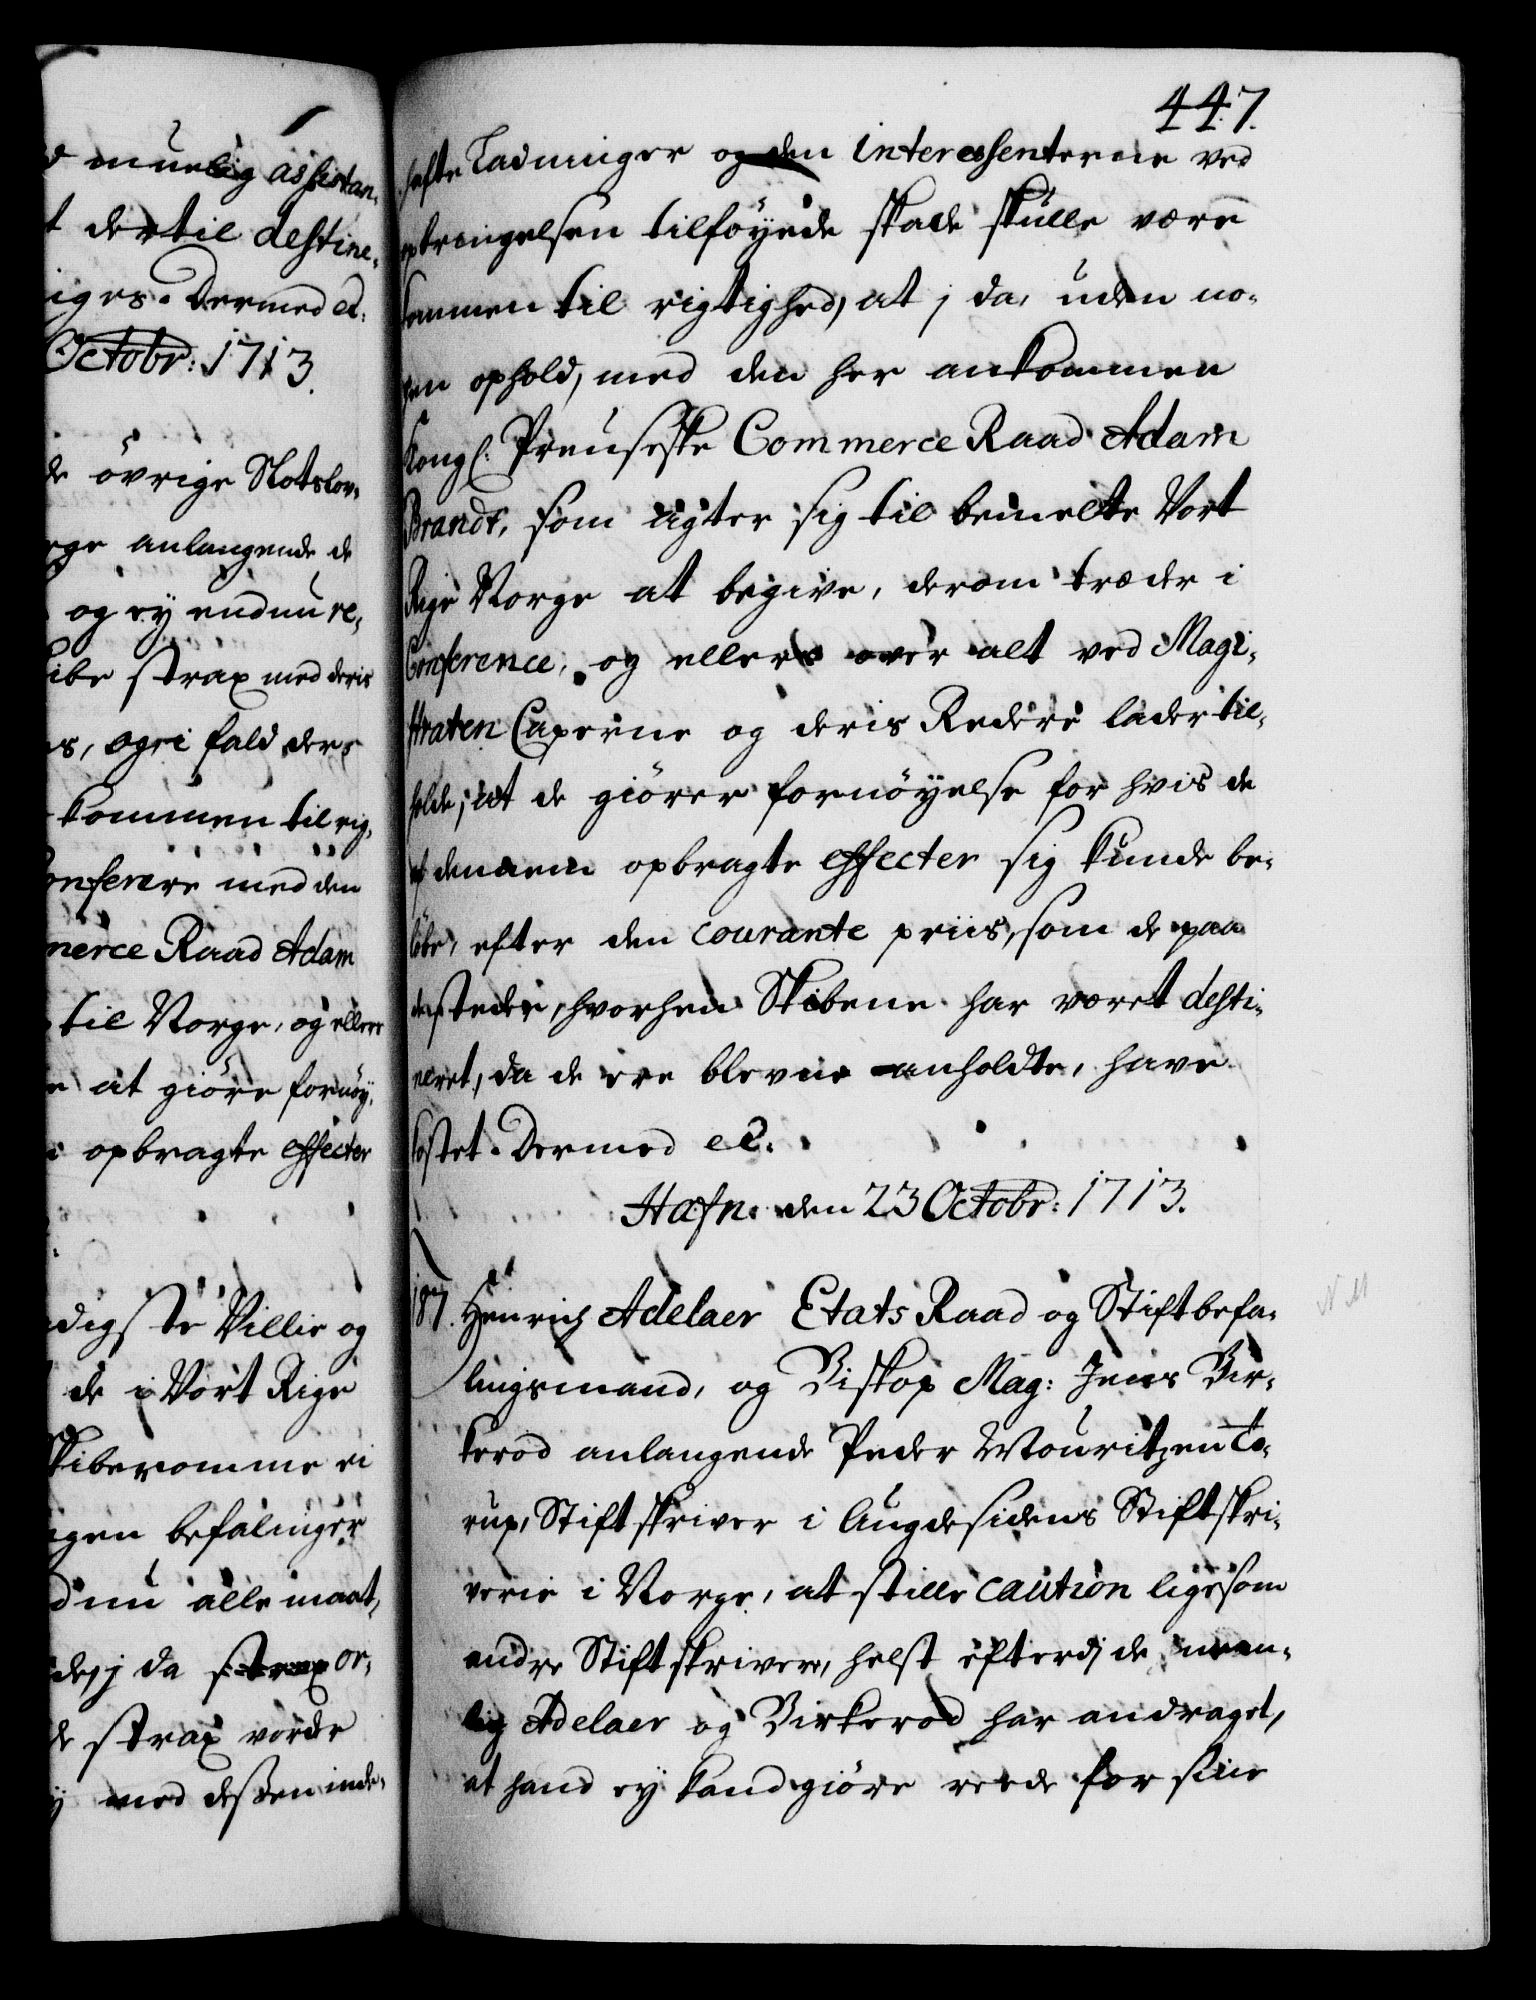 d muelig assistan-
t dertil destine-
iges. Dermed et:
Octobr: 1713.
de øvrige Slotslov-
rge anlangende de
og ey endnu re-
ibe strax med deris
s, og i fald der
kommen til rig-
Conferere med den
merce Raad Adam
til Norge, og ellers
at giøre fornøy-
opbragte effecter
digste Villie og
de i Vort Rige
Skiberomme ei
gen befalinger
dnu alle maat-
de, j da strax or-
de strax vorde
med dessen inde-
447.
hafte Ladninger og den interessenterne ved
opbringelsen tilføyede skade skulle være
kommen til rigtighed, at j da, uden no-
gen ophold, med den her ankommen
Kongl. Preuseske Commerce Raad Adam
Brandt, som agter sig til bemelte Vort
Rige Norge at begive, derom træder i
Conference, og ellers over alt ved Magi-
straten Caperne og deris Redere lader til-
holde, at de giører fornøyelse for hvis de
af dennem opbragte effecter sig kunde be-
løbe, efter den courante priis, som de paa
de steder, hvorhen Skibene har været desti-
neret, da de ere blevne anholdte, have
kostet. Dermed et:
Hafn: den 23 Octobr: 1713.
187. Henrich Adelaer Etats Raad og Stiftbefa-
lingsmand, og Biskop Mag: Jens Bir-
kerod anlangende Peder Mouritzen To-
rup, Stiftskriver i Augdesidens Stiftskri-
verie i Norge, at stille caution ligesom
andre Stiftskrivere, helst efterdj de nem-
lig Adelaer og Birkerod har andraget,
at hand ey kand giøre reede for sine